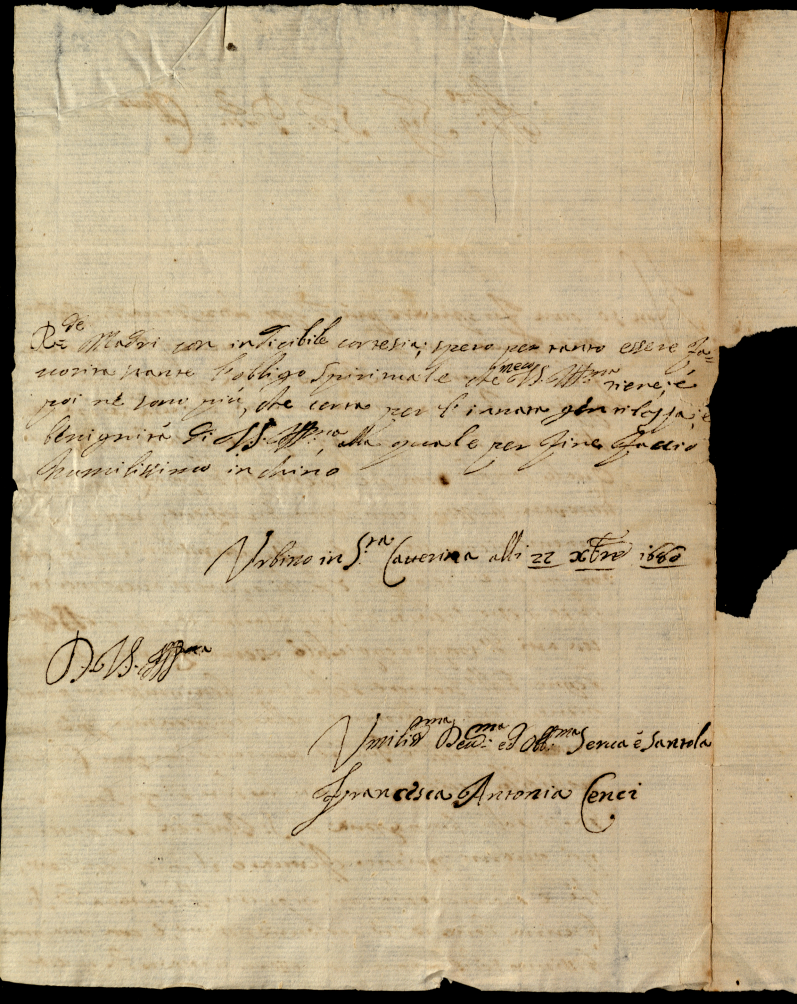 R.de Madri con indicibile cortesia; spero per tanto essere fa=
uorita stante l'obligo Spirituale che meco VS. Ill.ma tiene, é
poi né sono più, che certa per l'innata gentilezza, é
benignità di VS. Ill.ma, alla quale per fine faccio
humilissimo inchino
Urbino in S.ta Catterina alli 22 Xbre 1680
Di VS. Ill.ma
Umiliss.ma Deu.ma ed Obl.ma Serua é Santola
Francisca Antonia Cenci